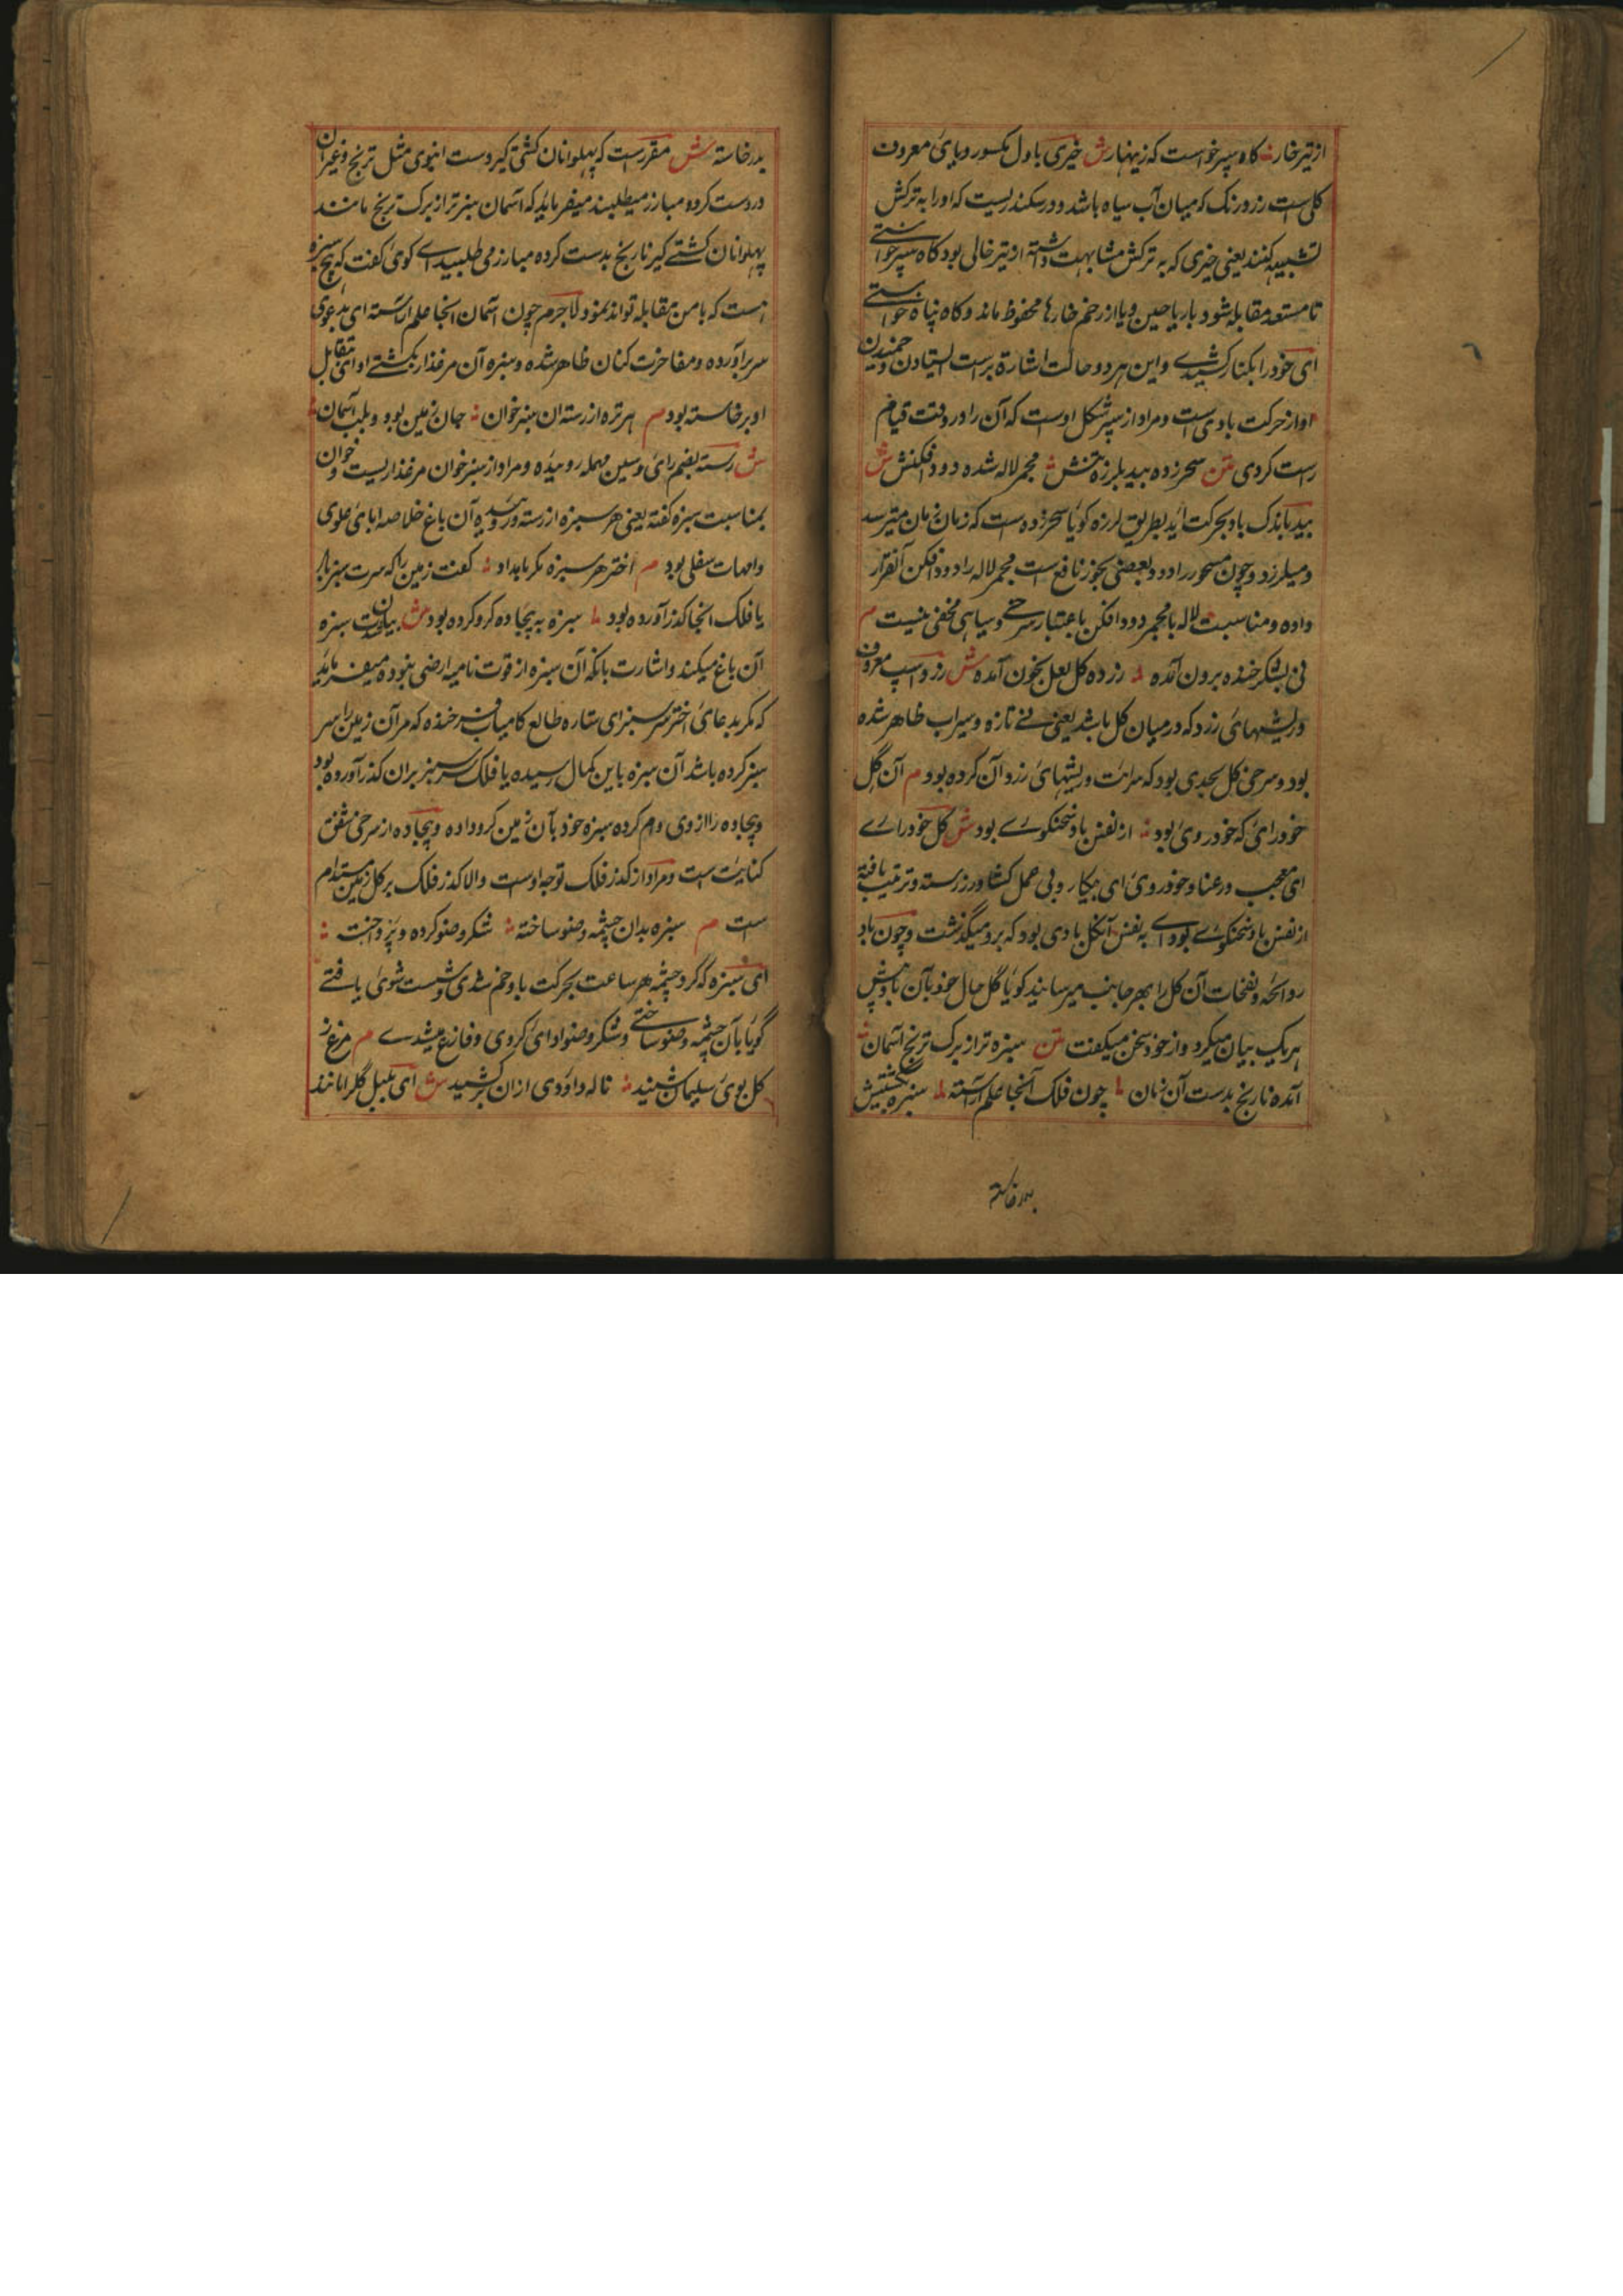 از تیر خار ؞ کاه سپر خواست که زینهار ش خیری باول مکسور و بای معروف
کلی است زرد رنک که میان آب سیاه باشد و در سکندریست که اورا به ترکش
تشبیه کنند یعنی خیری که به ترکش مشابهت داشته از تیر خالی بود کاه سپر خواستی
تا مستعد مقابله شود با ریاحین و یا از زخم خارها محفوظ ماند و کاه پناه خواستی
ای خود را بکنار کشیدی و این هر دو حالت اشارة براست ایستادن و خمیدن
او از حرکت باد است و مراد از سپر شکل اوست که آن را در وقت قیام
راست کردی متن سحرزده بید بلرزه تنش ؞ مجمر لاله شده دود افکنش ش
بید باندک باد بحرکت آید بطریق لرزه کویا سحرزده است که زمان زمان میترسد
و میلرزد و چون مسحور را دود بعضی بخور نافع است مجمر لاله را دود افکن آن قرار
داده و مناسبت لاله با مجمر دود افکن باعتبار سرخی و سیاهی مخفی نیست م
نی بشکر خنده برون آمده ؞ زرده کل لعل بخون آمده ش زرد اسپ معروف
و ریشهای زرد که در میان کل باشد یعنی نی تازه و سیراب ظاهر شده
بود و سرخی کل بحدی بود که سرایت و ریشهای زرد آن کرده بود م آن گل
خودرای که خودروی بود ؞ از نفس باد سخنکوی بود ش کل خودرای
ای معجب و رعنا و خودروی ای بیکار و بی عمل کشاورز رسته و ترتیب یافته
از نفس باد سخنکوی بود ای به نفس آنکل بادی بود که برو میگذشت و چون باد
روائحه و نفحات آن کل را بهر جانب میرسانید کویا گل حال خود بآن باد پیش
هر یک بیان میکرد و از خود سخن میکفت متن سبزه تر از برک ترنج آسمان ؞
آمده نارنج بدست آن زمان ؞ چون فلک آنجا علم آراسته ؞ سبزه بکشتیش
بدر خاسته
بدر خاسته ش مقرر است که پهلوانان کشتی گیر دست انبوی مثل ترنج و غیر آن
در دست کرده مبارز میطلبند میفرماید که آسمان سبزتر از برک ترنج مانند
پهلوانان کشتی گیر نارنج بدست کرده مبارز می طلبید ای کوی کفت که هیچ سبزه
هست که با من مقابله تواند نمود لاجرم چون آسمان آنجا علم آراسته ای بدعوی
سر برآورده و مفاخرت کنان ظاهر شده و سبزه آن مرغزار بکشتی او ای بتقابل
او برخاسته بود م هر تره از رسته آن سبز خوان ؞ جان زمین بود و بلب آسمان ؞
ش رسته بضم رای و سین مهمله روییده و مراد از سبز خوان مرغزار یست و خوان
بمناسبت سبزه کفته یعنی هر سبزه از رسته و روییده آن باغ خلاصه ابای علوی
و امهات سفلی بود م اختر هر سبزه مکر بامداد ؞ کفت زمین را که سرت سبز باد
یا فلک انجا کذر آورده بود ؞ سبزه به بیجاده کرو کرده بود ش بیان صفت سبزه
آن باغ میکند و اشارت بآنکه آن سبزه از قوت نامیه ارضی نبوده میفرماید
که مکر بدعای اختر سر سبز ای ستاره طالع کامیاب فرخنده که مر آن زمین را سر
سبز کرده باشد آن سبزه باین کمال رسیده یا فلک سر سبز بران کذر آورده بود
و بیجاده را از وی وام کرده سبزه خود بآن زمین کرو داده و بیجاده از سرخی شفق
کنایت است و مراد از کذر فلک توجه اوست والا کذر فلک بر کل زمین مستدام
است م سبزه بدان چشمه وضو ساخته ؞ شکر وضو کرده و پرداخت ؞
ای سبزه که گرد چشمه هر ساعت بحرکت باد خم شدی و شست شوی یافتی
گویا بآن چشمه وضو ساختی و شکر وضو ادا ی کردی و فارغ میشدی م مرغ ز
کل بوی سلیمان شنید ؞ ناله داودی ازان برکشید ش ای بلبل گلرا مانند